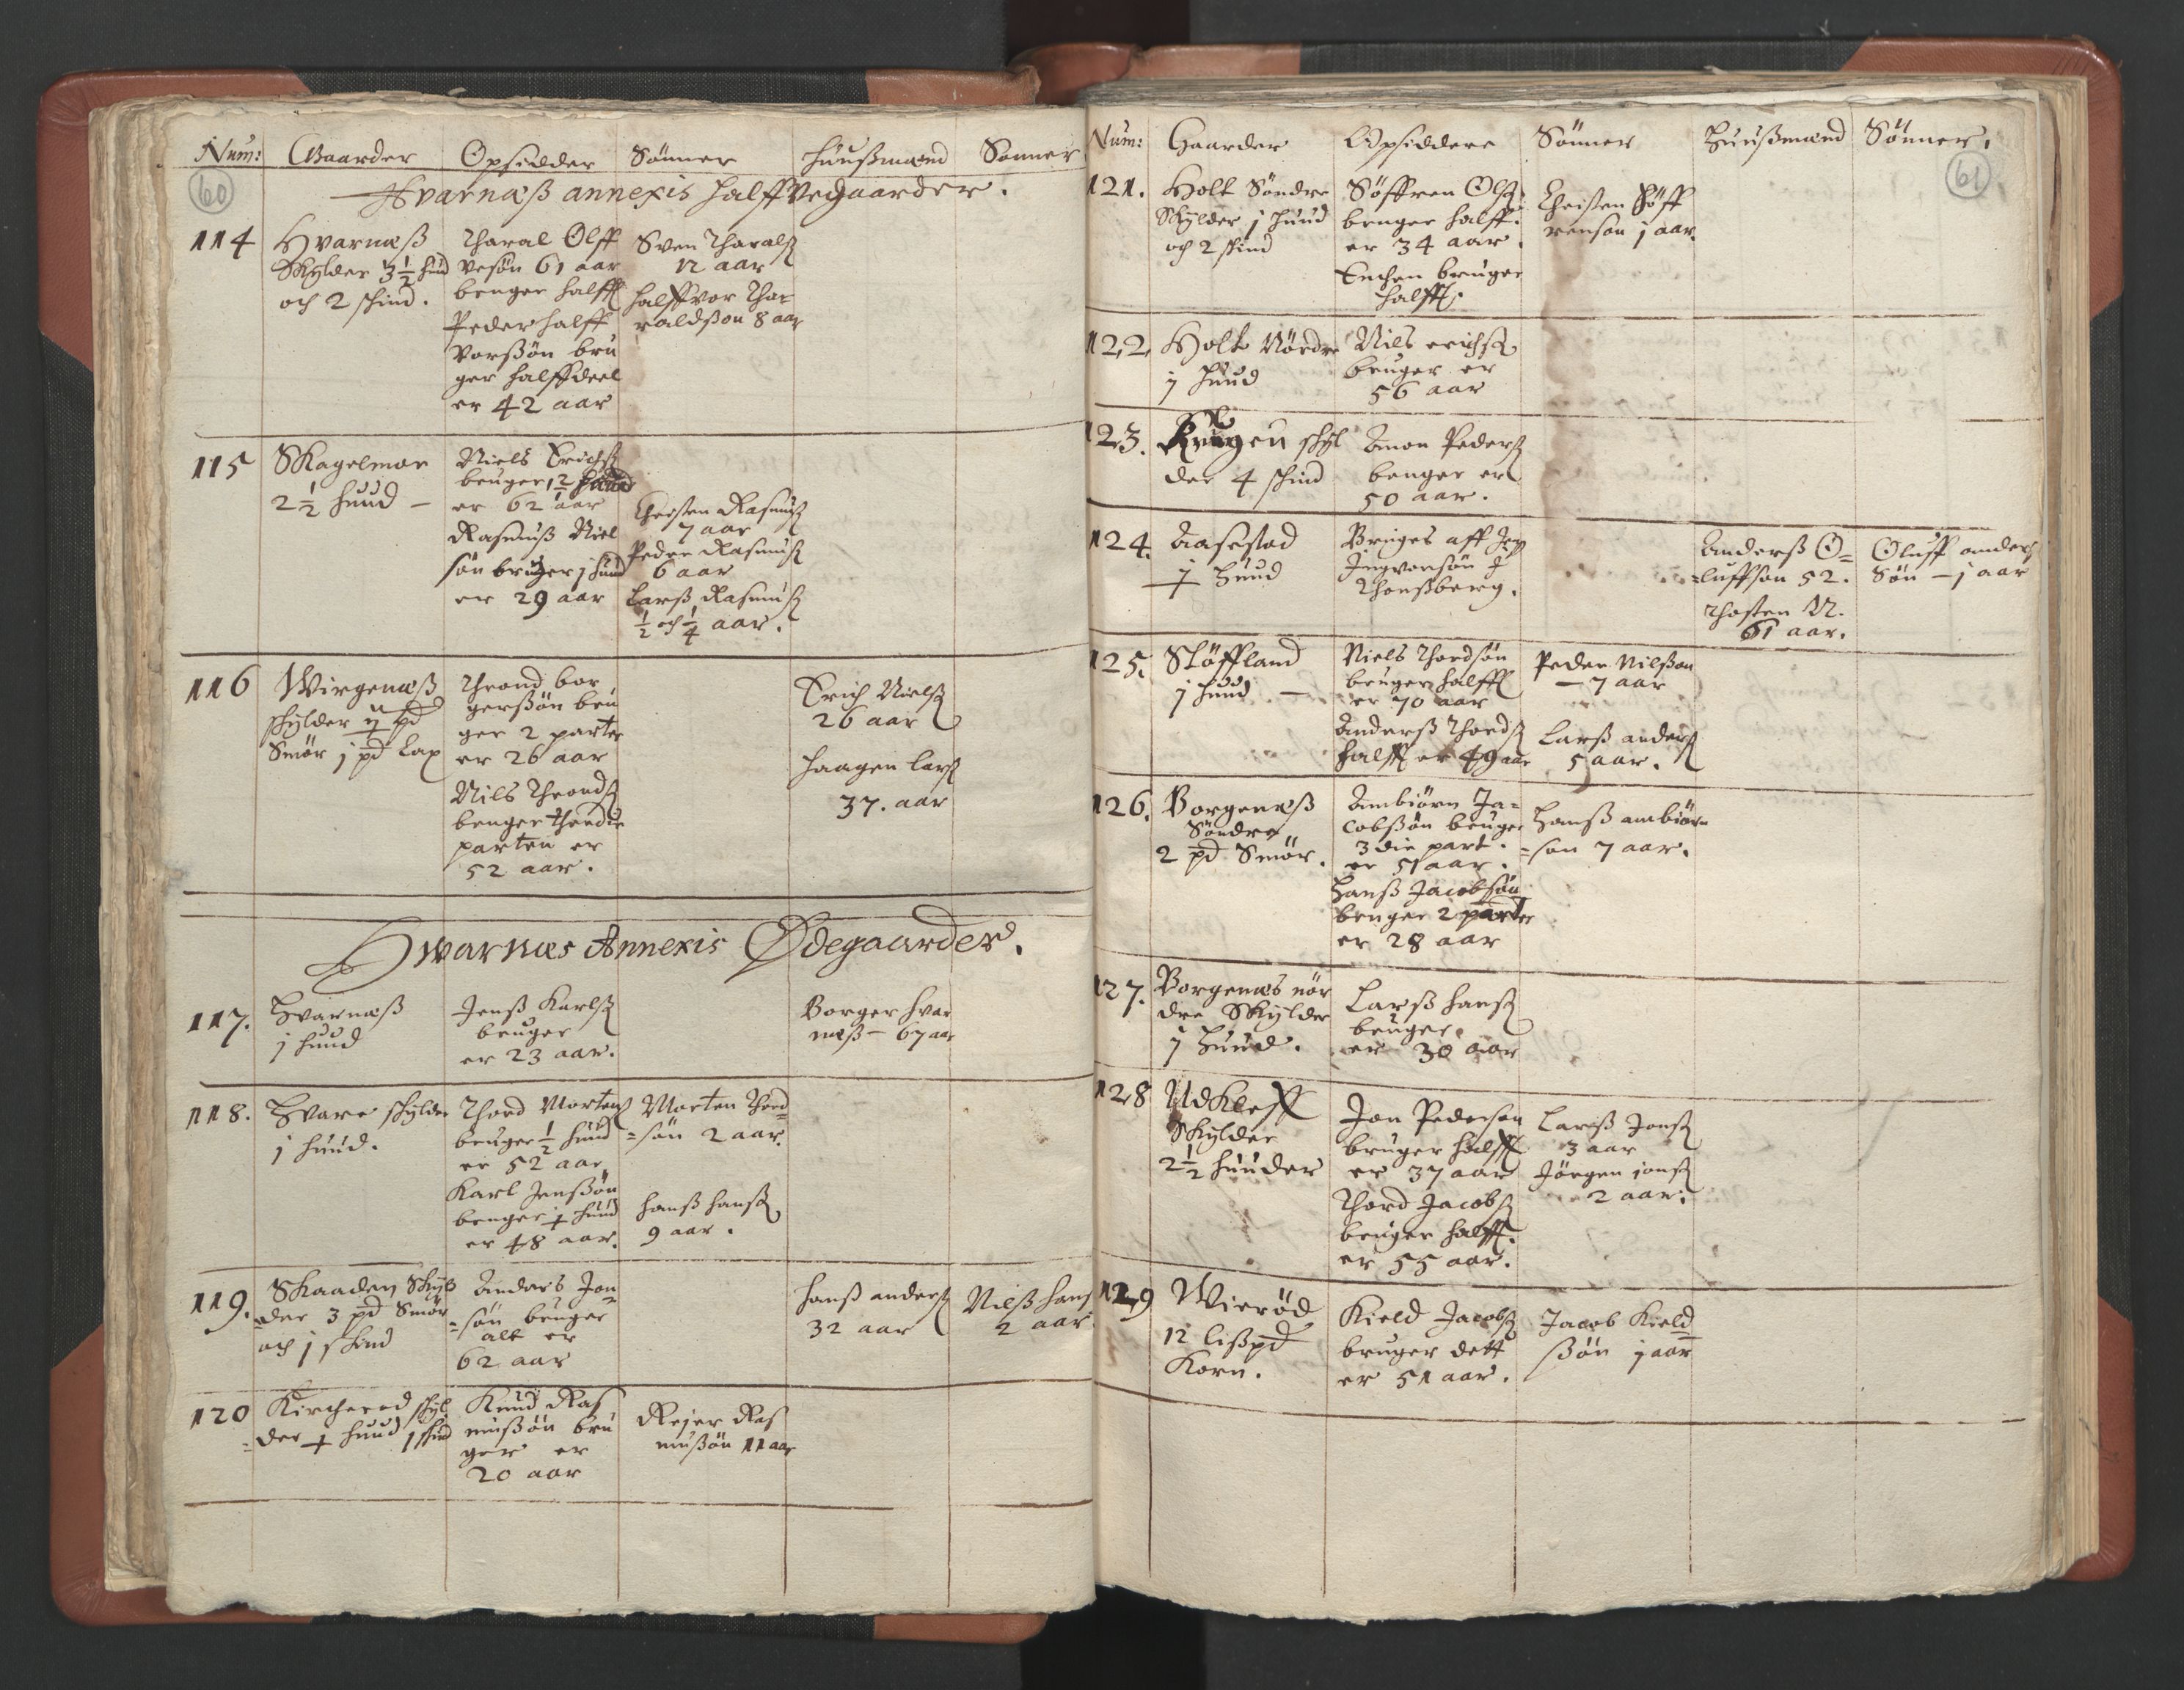 Num: Gaarder Opsidder Sönner Huußmænd Sönner
60
Hvarnæß annexis halffvegaarder.
114 Hvarnæß
Skylder 3 1/2 hud
och 2 schind.
Tharal Olff
vesøn 61 aar
bruger halff
Peder halff
vorßøn bru
ger halffdeel
er 42 aar
Sven Tharalß
12 aar
halffvor Tha-
raldßon 8 aar
115 Skagelmar
2 1/2 huud –
Niels Erichß
bruger 1 1/2 huud
er 62 aar
Rasmuß Niel
søn bruger j huud
er 29 aar
Christen Rasmuß
7 aar
Peder Rasmuß
6 aar
Larß Rasmuß
1/2 och 1/4 aar.
116 Wirgenæß
schylder
Smör j pd Lax
Thrond bor
gerßøn bru
ger 2 parter
er 26 aar
Nils Throndß
bruger thredie
parten er
52 aar.
Erich Nielß
26 aar
Haagen Larß
37. aar
Hwarnæs Annexis Ødegaarder.
117. Hvarnæß
j huud
Jenß Karlß
bruger
er 23 aar.
Borger Hvar
næß – 67 aar
118. Hvare schylder
j huud.
Thord Mortenß
bruger 1/2 huud
er 52 aar
Karl Jenßøn
bruger huud
er 48 aar.
Morten Thord=
=søn 2 aar.
Hanß Hanß
9 aar.
119. Skaaden Skyl
=der 3 pd Smör
och j skind
Anders Jon
=søn bruger
alt er
62 aar
Hanß Anderß
32 aar
Nilß Hanß
2 aar
120 Kircherød schyl
=der huud 1 skind
Knud Ras
mußøn bru
ger er
20 aar
Rejer Ras
mußøn 11 aar
Num: Gaarder Opsiddere Sönner Huußmænd Sönner.
61
121. Holt Söndre
Skylder j huud
och 2 skind
Søffren Olß
bruger halff.
er 34 aar.
Enchen bruger
halff.
Christen Söff
rensøn j aar.
122, Holt Nördre
j huud
Nils Erichß
bruger er
56 aar
123. Krogen schyl
der 4 schind
Amon Pederß
bruger er
50 aar.
124. Aasestad
huud
Bruges aff
Jngvorsøn J
Thonßberg.
Anderß O=
=luffsøn 52.
Thosten N.
61 aar.
Oluff Anderß
Søn – j aar
125. Støffland
j huud –
Niels Thordsøn
bruger halff
er 70 aar
Anderß Thordß
halff er 49 aar
Peder Nilßøn
– 7 aar
Larß Anderß
5 aar.
126. Borgenæß
Söndre
2 pd Smör.
Ambiörn Ja=
cobßøn bruger
3 die part.
er 51 aar.
Hanß Jacobsøn
bruger 2 parter
er 28 aar
Hanß Ambiörn
=søn 7 aar.
127. Borgenæs nör
dre Skylder
j huud.
Larß Hanß
bruger.
er 30 aar
128 Udkleff
Skylder
2 1/2 huuder
Jon Pedersøn
bruger halff
er 37 aar
Thord Jacobß
bruger halff.
er 55 aar.
Larß Jonß
3 aar
Jörgen Jonß
2 aar.
129 Wierød
12 lißpd
Korn.
Kield Jacobß
bruger dett
er 51 aar.
Jacob Kield
ßøn j aar